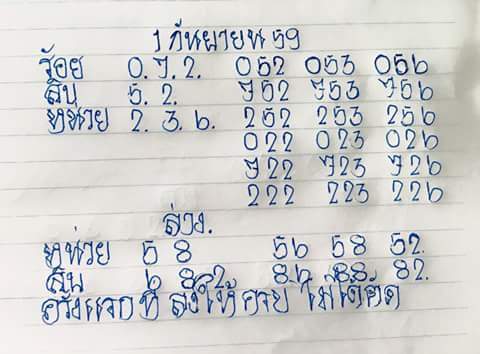 1 กันยายน 59
ร้อย 0. 7. 2. 052 053 056
สิบ 5. 2. 752 753 756
หน่วย 2. 3. 6. 252 253 256
022 023 026
722 723 726
222 223 226
ล่าง.
หน่วย 5 8 56 58 52.
สิบ 6 8 2 86 88 82.
ครั้งแรก ที่ ส่งให้ ครับ ไม่ได้ตัด